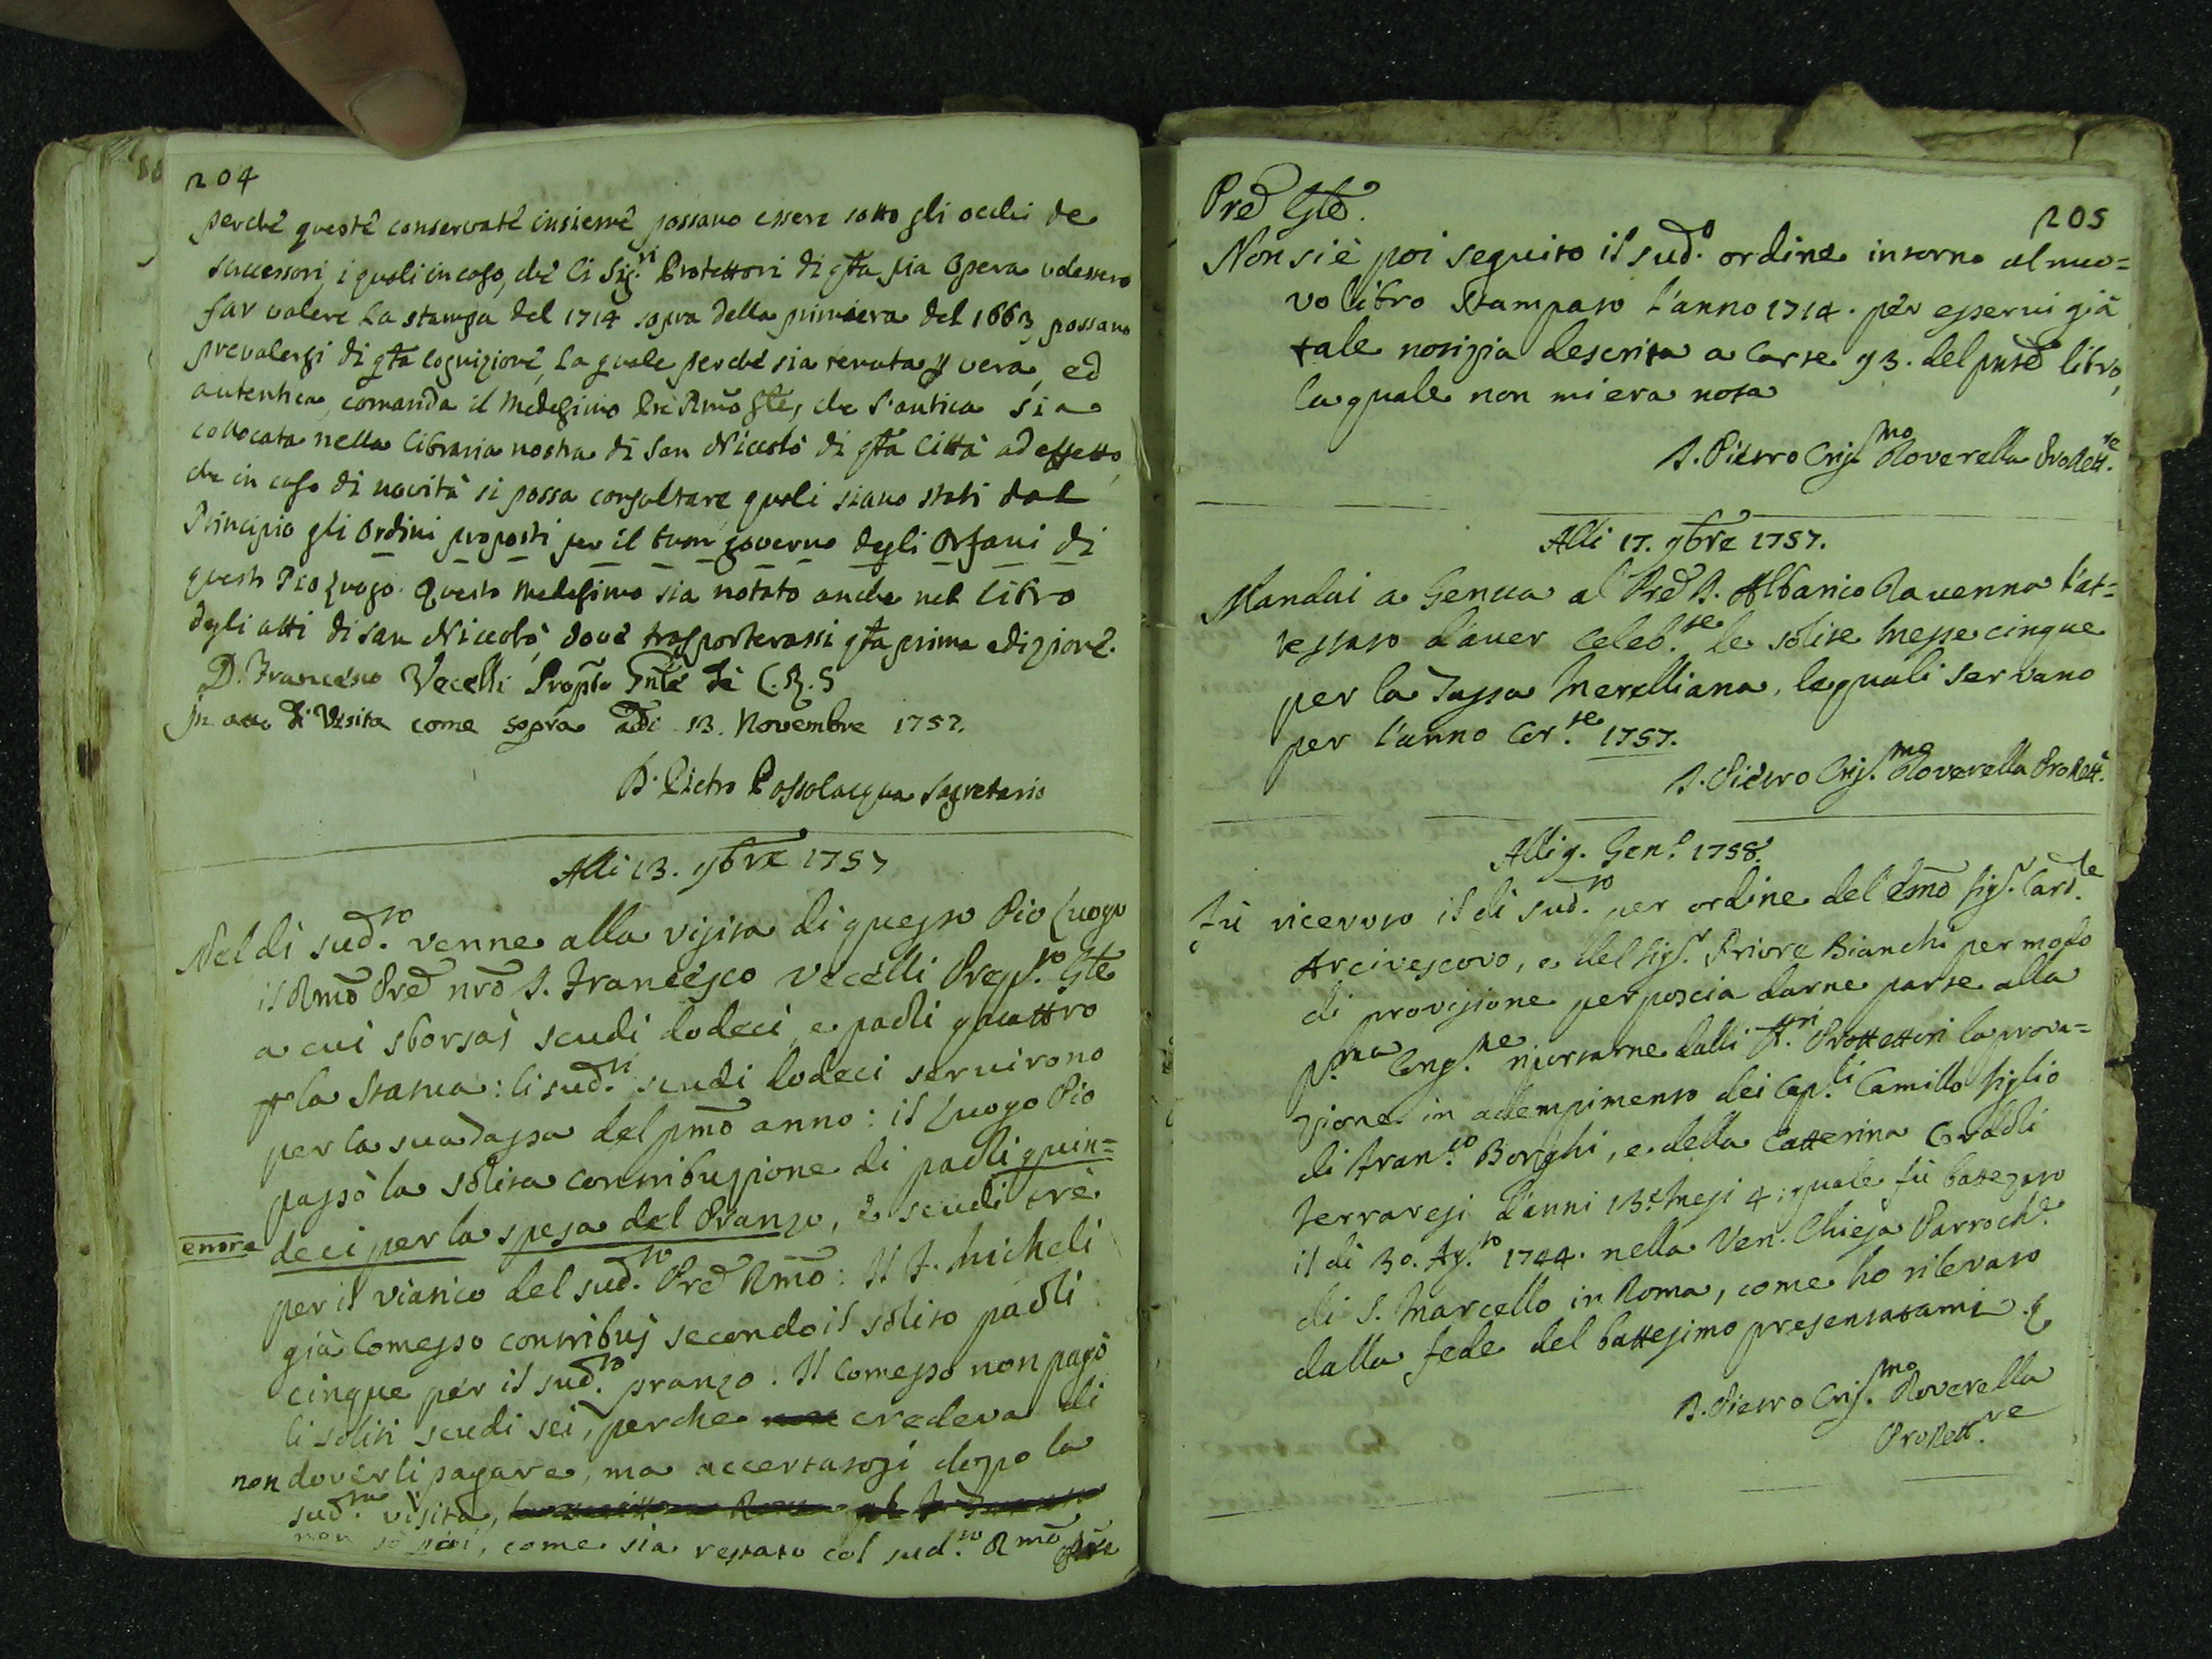 204
perchè queste conservate insieme possano essere sotto gli occhi de
successori, i quali in caso, che li Sig.ri Protettori di qta pia Opera volessero
far valere la stampa del 1714 sopra della primiera del 1663, possano
prevalersi di qta cognizione, la quale perchè sia tenuta p vera, ed
autentica, comanda il medesimo Pre Rmo Gle, che l'antica sia
collocata nella libraria nostra di San Niccolò di qta Città ad effetto,
che in caso di novità si possa consultare quali siano stati dal
Principio gli Ordini proposti per il buon governo degli Orfani di
questo Pio Luogo. Questo medesimo sia notato anche nel libro
degli atti di San Niccolò, dove trasporterassi qta prima edizione.
D. Francesco Vecelli Prepto Gnle de C.R.S
In atto di Visita come sopra adì 13. Novembre 1757.
D. Pietro Passolacqua Segretario
Alli 13. 9bre 1757
Nel dì sud.to venne alla visita di questo Pio Luogo
il Rmo Pred nro D. Francesco Vecelli Prep.to Gle
a cui sborsai scudi dodeci, e paoli quattro
p la Stanza: li sud.ti scudi dodeci servirono
per la sua Tassa del pmo anno: il Luogo Pio
passò la solita contribuzione di paoli quin=
errore deci per la spesa del Pranzo, e scudi trè
per il viatico del sud.to Pred Rmo: Il F. Micheli
già Comesso contribuj secondo il solito paoli
cinque per il sud.to pranzo: Il Comesso non pagò
li soliti scudi sei, perche credeva di
non doverli pagare, ma accertatosi dopo la
sud.ta visita,
non sò poi, come sia restato col sud.to Rmo Pre
205
Pred Gle.
Non si è poi seguito il sud.o ordine intorno al nuo=
vo libro Stampato l'anno 1714. per esservi già
tale notizia descritta a carte 93. del pnte libro,
la quale non mi era nota
D. Pietro Cris.mo Roverella ProRett.re
Alli 17. 9bre 1757.
Mandai a Genua al Pred D. Albarico Ravenna l'at=
testato d'aver celeb.te le solite Messe cinque
per la Tassa Merelliana, le quali servano
per l'anno Cor.te 1757.
D. Pietro Cris.mo Roverella ProRett.
Alli 9. Gen.o 1758.
Fù ricevuto il dì sud.to per ordine del Emo Sig.r Card.le
Arcivescovo, e del Sig.r Priore Bianchi per modo
di provisione per poscia darne parte alla
p.ma Cong.ne riportarne dalli Protettori la prova=
zione in adempimento dei Cap.li Camillo figlio
di Fran.co Borghi, e della Catterina Coradli
Ferraresi d'anni 13. Mesi 4: quale fù battezato
il dì 30. Ag.to 1744. nella Ven. Chiesa Parroch.e
di S. Marcello in Roma, come ho rilevato
dalla fede del battesimo presentatami.
D. Pietro Cris.mo Roverella
ProRett.re